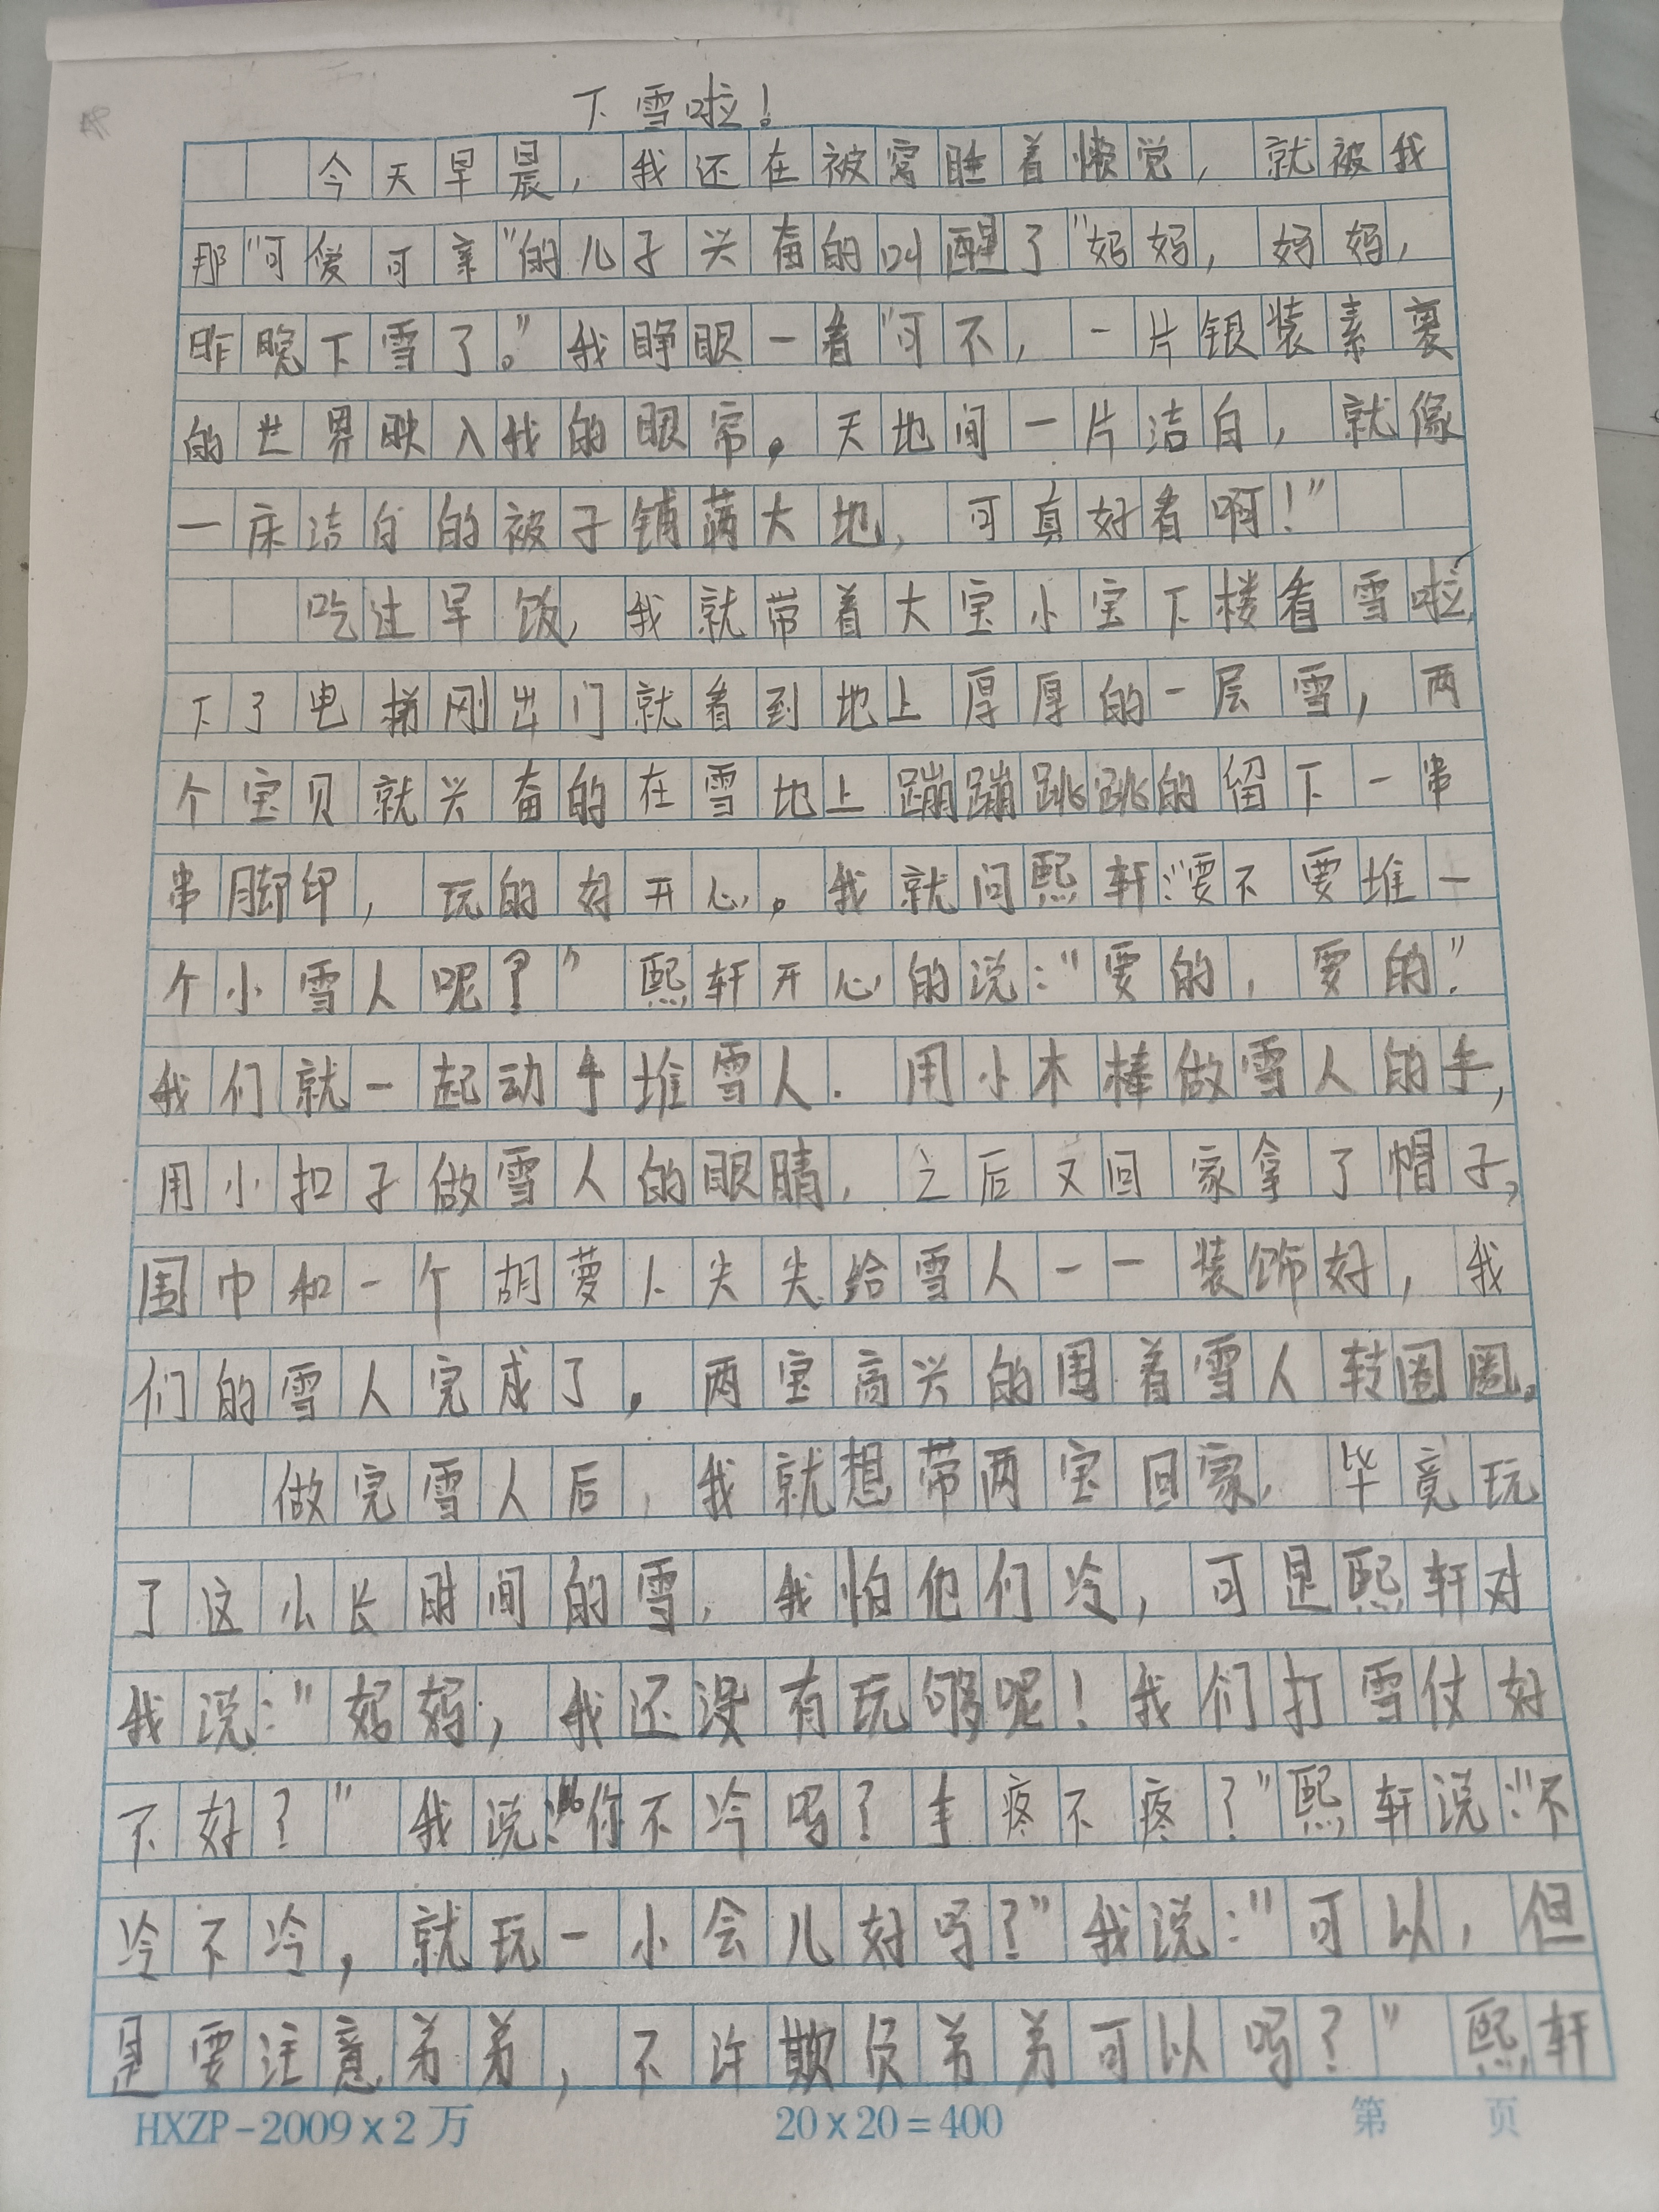 下雪啦！
今天早晨，我还在被窝睡着懒觉，就被我
那"可爱可亲"的儿子兴奋的叫醒了"妈妈，妈妈，
昨晚下雪了。"我睁眼一看"可不，一片银装素裹
的世界映入我的眼帘。天地间一片洁白，就像
一床洁白的被子铺满大地，可真好看啊！"
吃过早饭，我就带着大宝小宝下楼看雪啦，
下了电梯刚出门就看到地上厚厚的一层雪，两
个宝贝就兴奋的在雪地上蹦蹦跳跳的留下一串
串脚印，玩的好开心。我就问熙轩："要不要堆一
个小雪人呢？"熙轩开心的说："要的，要的."
我们就一起动手堆雪人.用小木棒做雪人的手，
用小扣子做雪人的眼睛，之后又回家拿了帽子，
围巾和一个胡萝卜尖尖给雪人一一装饰好，我
们的雪人完成了。两宝高兴的围着雪人转圈圈。
做完雪人后，我就想带两宝回家，毕竟玩
了这么长时间的雪，我怕他们冷，可是熙轩对
我说："妈妈，我还没有玩够呢！我们打雪仗好
不好？"我说："你不冷吗？手疼不疼？"熙轩说："不
冷不冷，就玩一小会儿好吗？"我说："可以，但
是要注意弟弟，不许欺负弟弟可以吗？"熙轩
HXZP-2009×2万 20×20=400 第 页